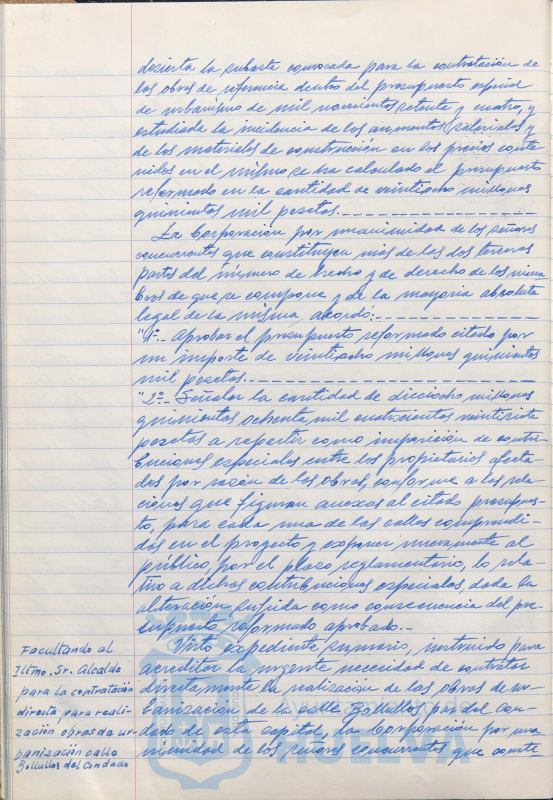 desierta la subasta convocada para la contratación de
las obras de referencia dentro del presupuesto especial
de urbanismo de mil novecientos setenta y cuatro, y
estudiada la incidencia de los aumentos salariales y
de los materiales de construcción en los precios conte
nidos en el mismo, se ha calculado el presupuesto
reformado en la cantidad de veintiocho millones
quinientas mil pesetas.
La Corporación por unanimidad de los señores
concurrentes que constituyen más de las dos terceras
partes del número de hecho y de derecho de los miem
bros de que se compone y de la mayoría absoluta
legal de la misma, acordó:
"1º.- Aprobar el presupuesto reformado citado por
un importe de veintiocho millones quinientas
mil pesetas.
"2º.- Señalar la cantidad de dieciocho millones
quinientas ochenta mil cuatrocientas veintisiete
pesetas a repartir como imposición de contri
buciones especiales entre los propietarios afecta
dos por razón de las obras, conforme a las rela
ciones que figuran anexas al citado presupues
to, para cada una de las calles comprendi
das en el proyecto y exponer nuevamente al
público, por el plazo reglamentario, lo rela
tivo a dichas contribuciones especiales, dada la
alteración sufrida como consecuencia del pre
supuesto reformado aprobado.-
Facultando al
Iltmo. Sr. Alcalde
para la contratación
directa para reali-
zación obras de ur
banización calle
Bollullos del Condado
Visto expediente sumario, instruido para
acreditar la urgente necesidad de contratar
directamente la realización de las obras de ur
banización de la calle Bollullos par del Con-
dado de esta capital, la Corporación por una
nimidad de los señores concurrentes que consti-
HUELVA